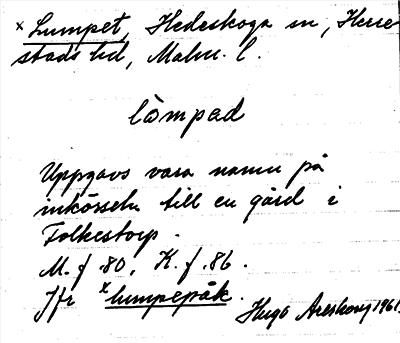 × Lumpet, Hedeskoga sn, Herre-
stads hd, Malm. l.
lòmpad
Uppgavs vara namn på
inkörseln till en gård i
Folkestorp.
M. f. 80, K. f. 86.
Jfr × lumpepåk.
Hugo Areskoug 1961.